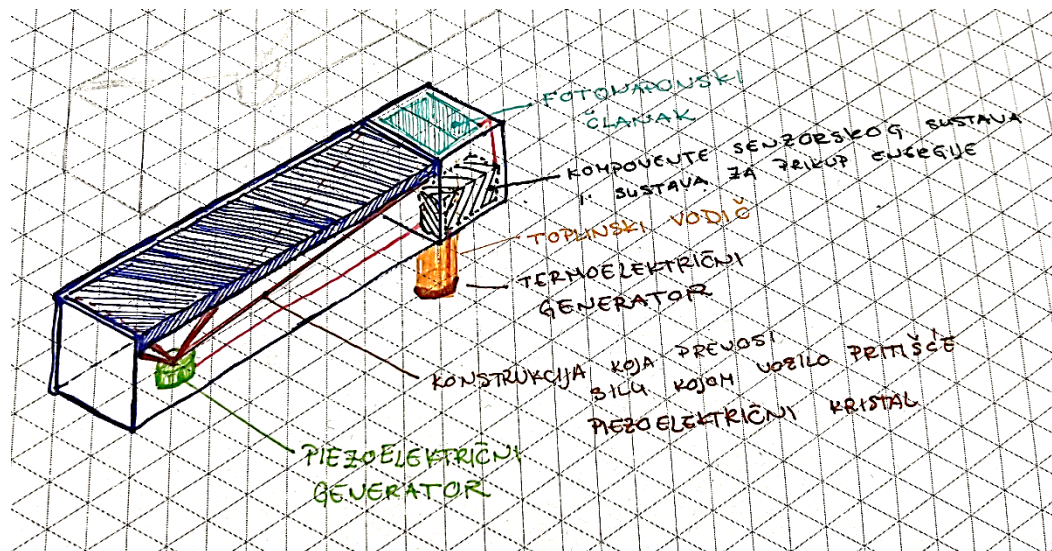 FOTONAPONSKI
ČLANAK
KOMPONENTE SENZORSKOG SUSTAVA
I SUSTAVA ZA PRIKUP ENERGIJE
TOPLINSKI VODIČ
TERMOELEKTRIČNI
GENERATOR
KONSTRUKCIJA KOJA PRENOSI
SILU KOJOM VOZILO PRITIŠĆE
PIEZOELEKTRIČNI KRISTAL
PIEZOELEKTRIČNI
GENERATOR